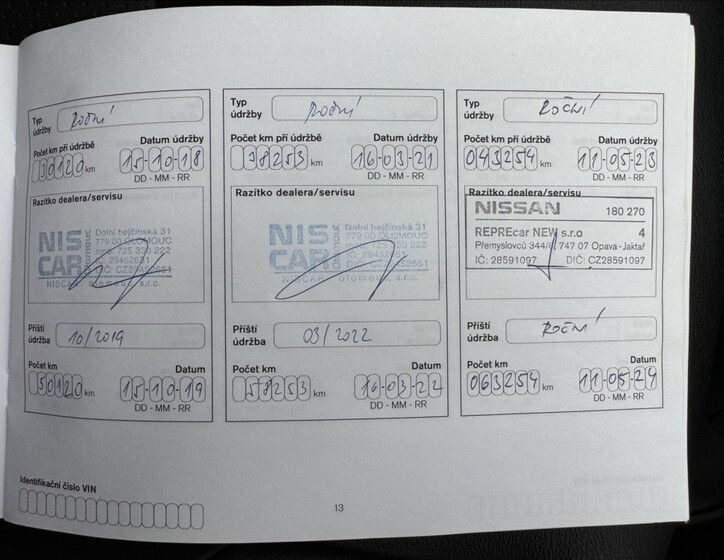 Typ údržby Roční
Počet km při údržbě Datum údržby
30120 km 15-10-18
DD - MM - RR
Razítko dealera/servisu
NIS CAR OLOMOUC
Dolní hejčínská 31
779 00 OLOMOUC
mob: 725 350 222
IČ: 29452651
DIČ: CZ29452651
NISCAR olomouc, s.r.o.
Příští údržba 10/2019
Počet km Datum
50120 km 15-10-19
DD - MM - RR
Typ údržby Roční
Počet km při údržbě Datum údržby
38253 km 16-03-21
DD - MM - RR
Razítko dealera/servisu
NIS CAR OLOMOUC
Dolní hejčínská 31
779 00 OLOMOUC
mob: 725 350 222
IČ: 29452651
DIČ: CZ29452651
NISCAR olomouc, s.r.o.
Příští údržba 03/2022
Počet km Datum
58253 km 16-03-22
DD - MM - RR
Typ údržby ROČNÍ
Počet km při údržbě Datum údržby
043254 km 11-05-23
DD - MM - RR
Razítko dealera/servisu
NISSAN 180 270
REPREcar NEW s.r.o 4
Přemyslovců 344/ 747 07 Opava-Jaktař
IČ: 28591097 DIČ: CZ28591097
Příští údržba ROČNÍ
Počet km Datum
063254 km 11-05-24
DD - MM - RR
Identifikační číslo VIN
13